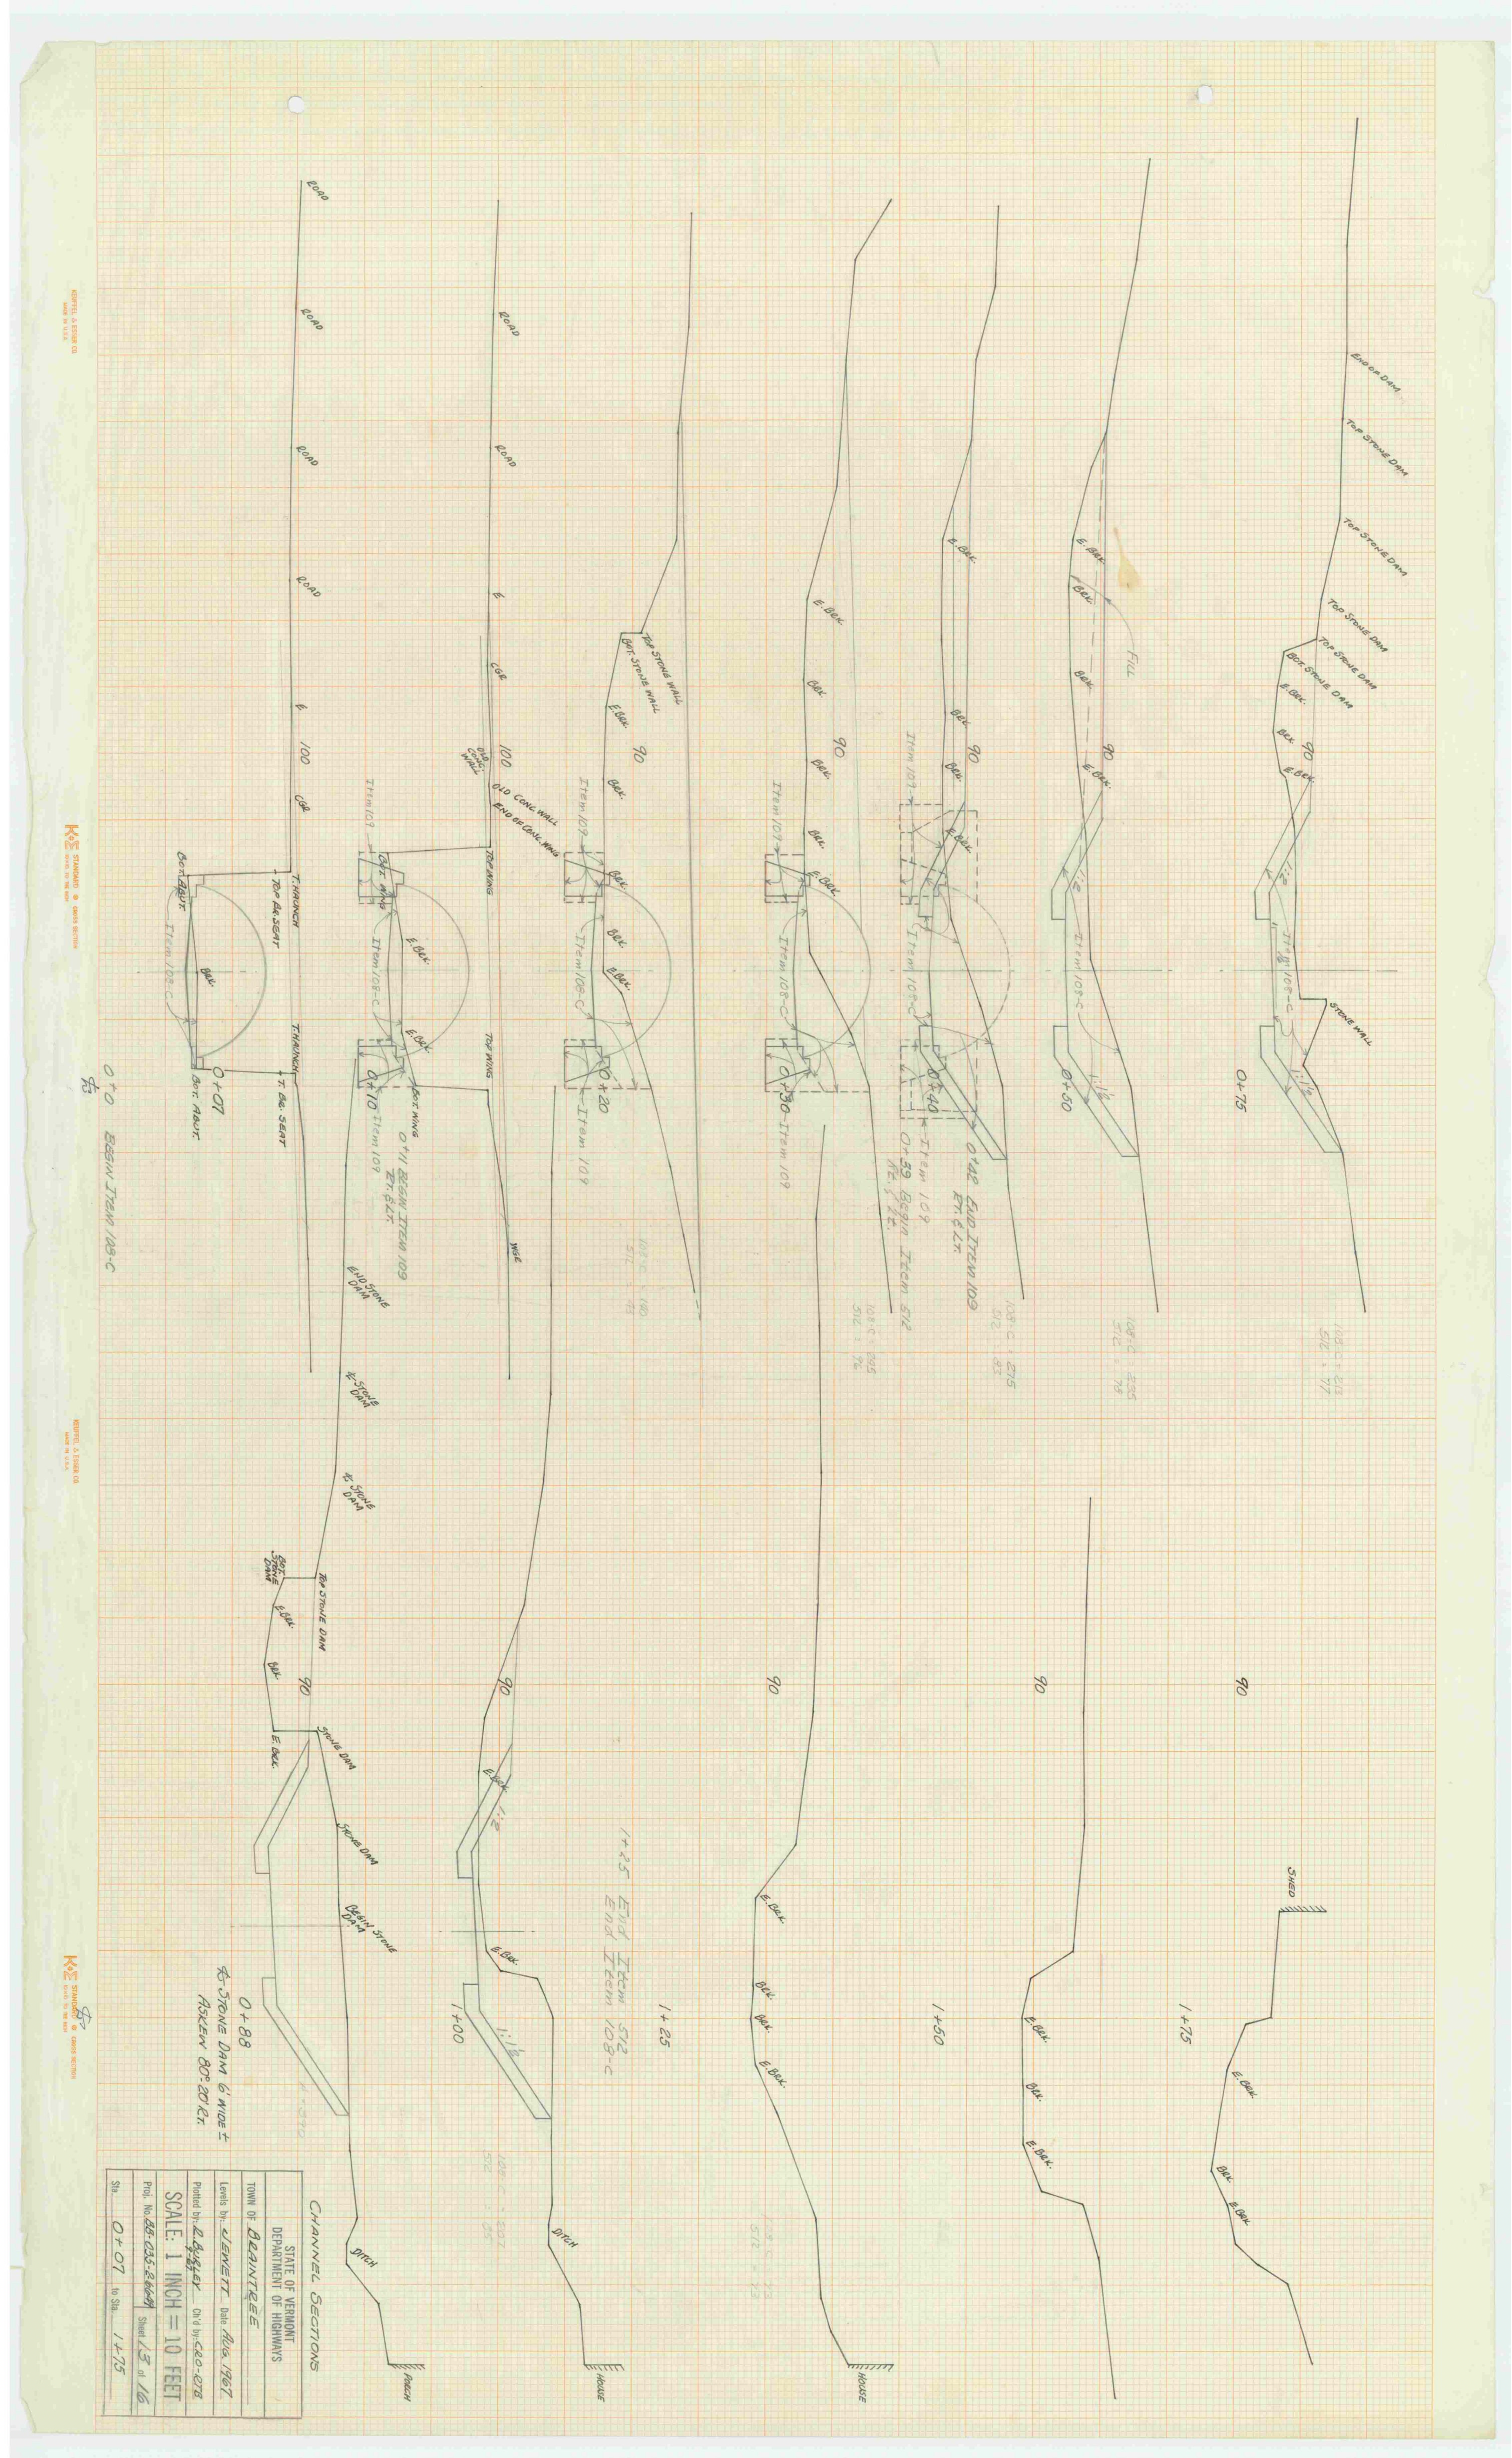 ROAD
ROAD
ROAD
ROAD
℄
100
CGR
T. HAUNCH
TOP BR. SEAT
BOT. ABUT.
Item 108-C
BRK
T. HAUNCH
T. BR. SEAT
BOT. ABUT.
0+07
0+0 BEGIN ITEM 108-C
ROAD
ROAD
℄
CGR
100
OLD CONC. WALL
OLD CONC WALL
END OF CONC. WING
TOP WING
Item 109
BOT. WING
Item 108-C
E. BRK.
E. BRK
TOP WING
BOT. WING
0+10
Item 109
0+11 BEGIN ITEM 109
RT. & LT.
WGR
TOP STONE WALL
BOT. STONE WALL
E. BRK
90
BRK.
Item 109
BRK
BRK
Item 108-C
E. BRK.
0+20
Item 109
108-C = 190
E. BRK
BRK
90
BRK.
Item 109
BRK
E. BRK
Item 108-C
0+30
Item 109
108-C = 245
512 = 96
E. BRK.
BRK
90
BRK.
Item 109
E. BRK
Item 108-C
0+40
Item 109
0+39 Begin Item 512
Rt. & Lt.
0+42 END ITEM 109
RT. & LT.
108-C = 275
512 83
E. BRK
BRK.
FILL
BRK.
90
E. BRK.
1:2
Item 108-C
1:1½
0+50
108-C = 295
512 = 78
END OF DAM
TOP STONE DAM
TOP STONE DAM
TOP STONE DAM
TOP STONE DAM
BOT. STONE DAM
E. BRK.
BRK
90
E. BRK
1:2
Item 108-C
STONE WALL
1:1½
0+75
512 = 77
END STONE DAM
℄ STONE DAM
℄ STONE DAM
BOT. STONE DAM
TOP STONE DAM
E. BRK
BRK
90
E. BRK.
STONE DAM
STONE DAM
BEGIN STONE DAM
0+88
℄ STONE DAM 6' WIDE ±
ASKEW 80°-20' RT.
DITCH
PORCH
90
E. BRK
1:2
E. BRK
1:1½
1+00
DITCH
HOUSE
1+25 End Item 512
End Item 108-C
90
E. BRK.
BRK
BRK.
E. BRK.
1+25
HOUSE
90
E. BRK.
BRK.
E. BRK.
1+50
90
SHED
E. BRK
BRK
E. BRK
1+75
CHANNEL SECTIONS
STATE OF VERMONT
DEPARTMENT OF HIGHWAYS
TOWN OF BRAINTREE
Levels by JEWETT Date AUG. 1967
Plotted by R. BURLEY Ch'd by CRO-RTB
SCALE: 1 INCH = 10 FEET
Sheet 13 of 16
Sta. 0+07 to Sta. 1+75
KEUFFEL & ESSER CO
MADE IN U.S.A.
K+E STANDARD ® CROSS SECTION
KEUFFEL & ESSER CO
MADE IN U.S.A.
K+E STANDARD ® CROSS SECTION